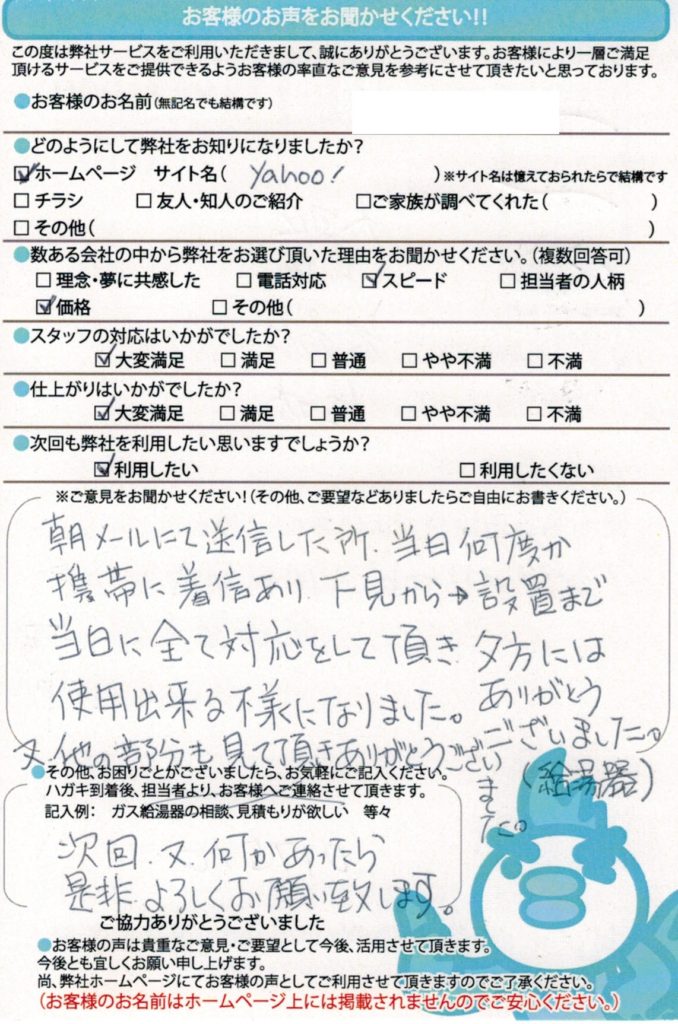 お客様のお声をお聞かせください!!
この度は弊社サービスをご利用いただきまして、誠にありがとうございます。お客様により一層ご満足
頂けるサービスをご提供できるようお客様の率直なご意見を参考にさせて頂きたいと思っております。
●お客様のお名前(無記名でも結構です)
●どのようにして弊社をお知りになりましたか?
☑ホームページ サイト名( Yahoo! )※サイト名は憶えておられたらで結構です
□チラシ □友人・知人のご紹介 □ご家族が調べてくれた( )
□その他( )
●数ある会社の中から弊社をお選び頂いた理由をお聞かせください。(複数回答可)
□理念・夢に共感した □電話対応 ☑スピード □担当者の人柄
☑価格 □その他( )
●スタッフの対応はいかがでしたか?
☑大変満足 □満足 □普通 □やや不満 □不満
●仕上がりはいかがでしたか?
☑大変満足 □満足 □普通 □やや不満 □不満
●次回も弊社を利用したい思いますでしょうか?
☑利用したい □利用したくない
※ご意見をお聞かせください!(その他、ご要望などありましたらご自由にお書きください。)
朝メールにて送信した所、当日何度か
携帯に着信あり 下見から→設置まで
当日に全て対応をして頂き 夕方には
使用出来る様になりました。ありがとう
ございました。
又、他の部分も見て頂きありがとうござい
ました。
(給湯器)
●その他、お困りごとがございましたら、お気軽にご記入ください。
ハガキ到着後、担当者より、お客様へご連絡させて頂きます。
記入例: ガス給湯器の相談、見積もりが欲しい 等々
次回、又、何かあったら
是非よろしくお願い致します。
ご協力ありがとうございました
●お客様の声は貴重なご意見・ご要望として今後、活用させて頂きます。
今後とも宜しくお願い申し上げます。
尚、弊社ホームページにてお客様の声としてご利用させて頂きますのでご了承ください。
(お客様のお名前はホームページ上には掲載されませんのでご安心ください。)